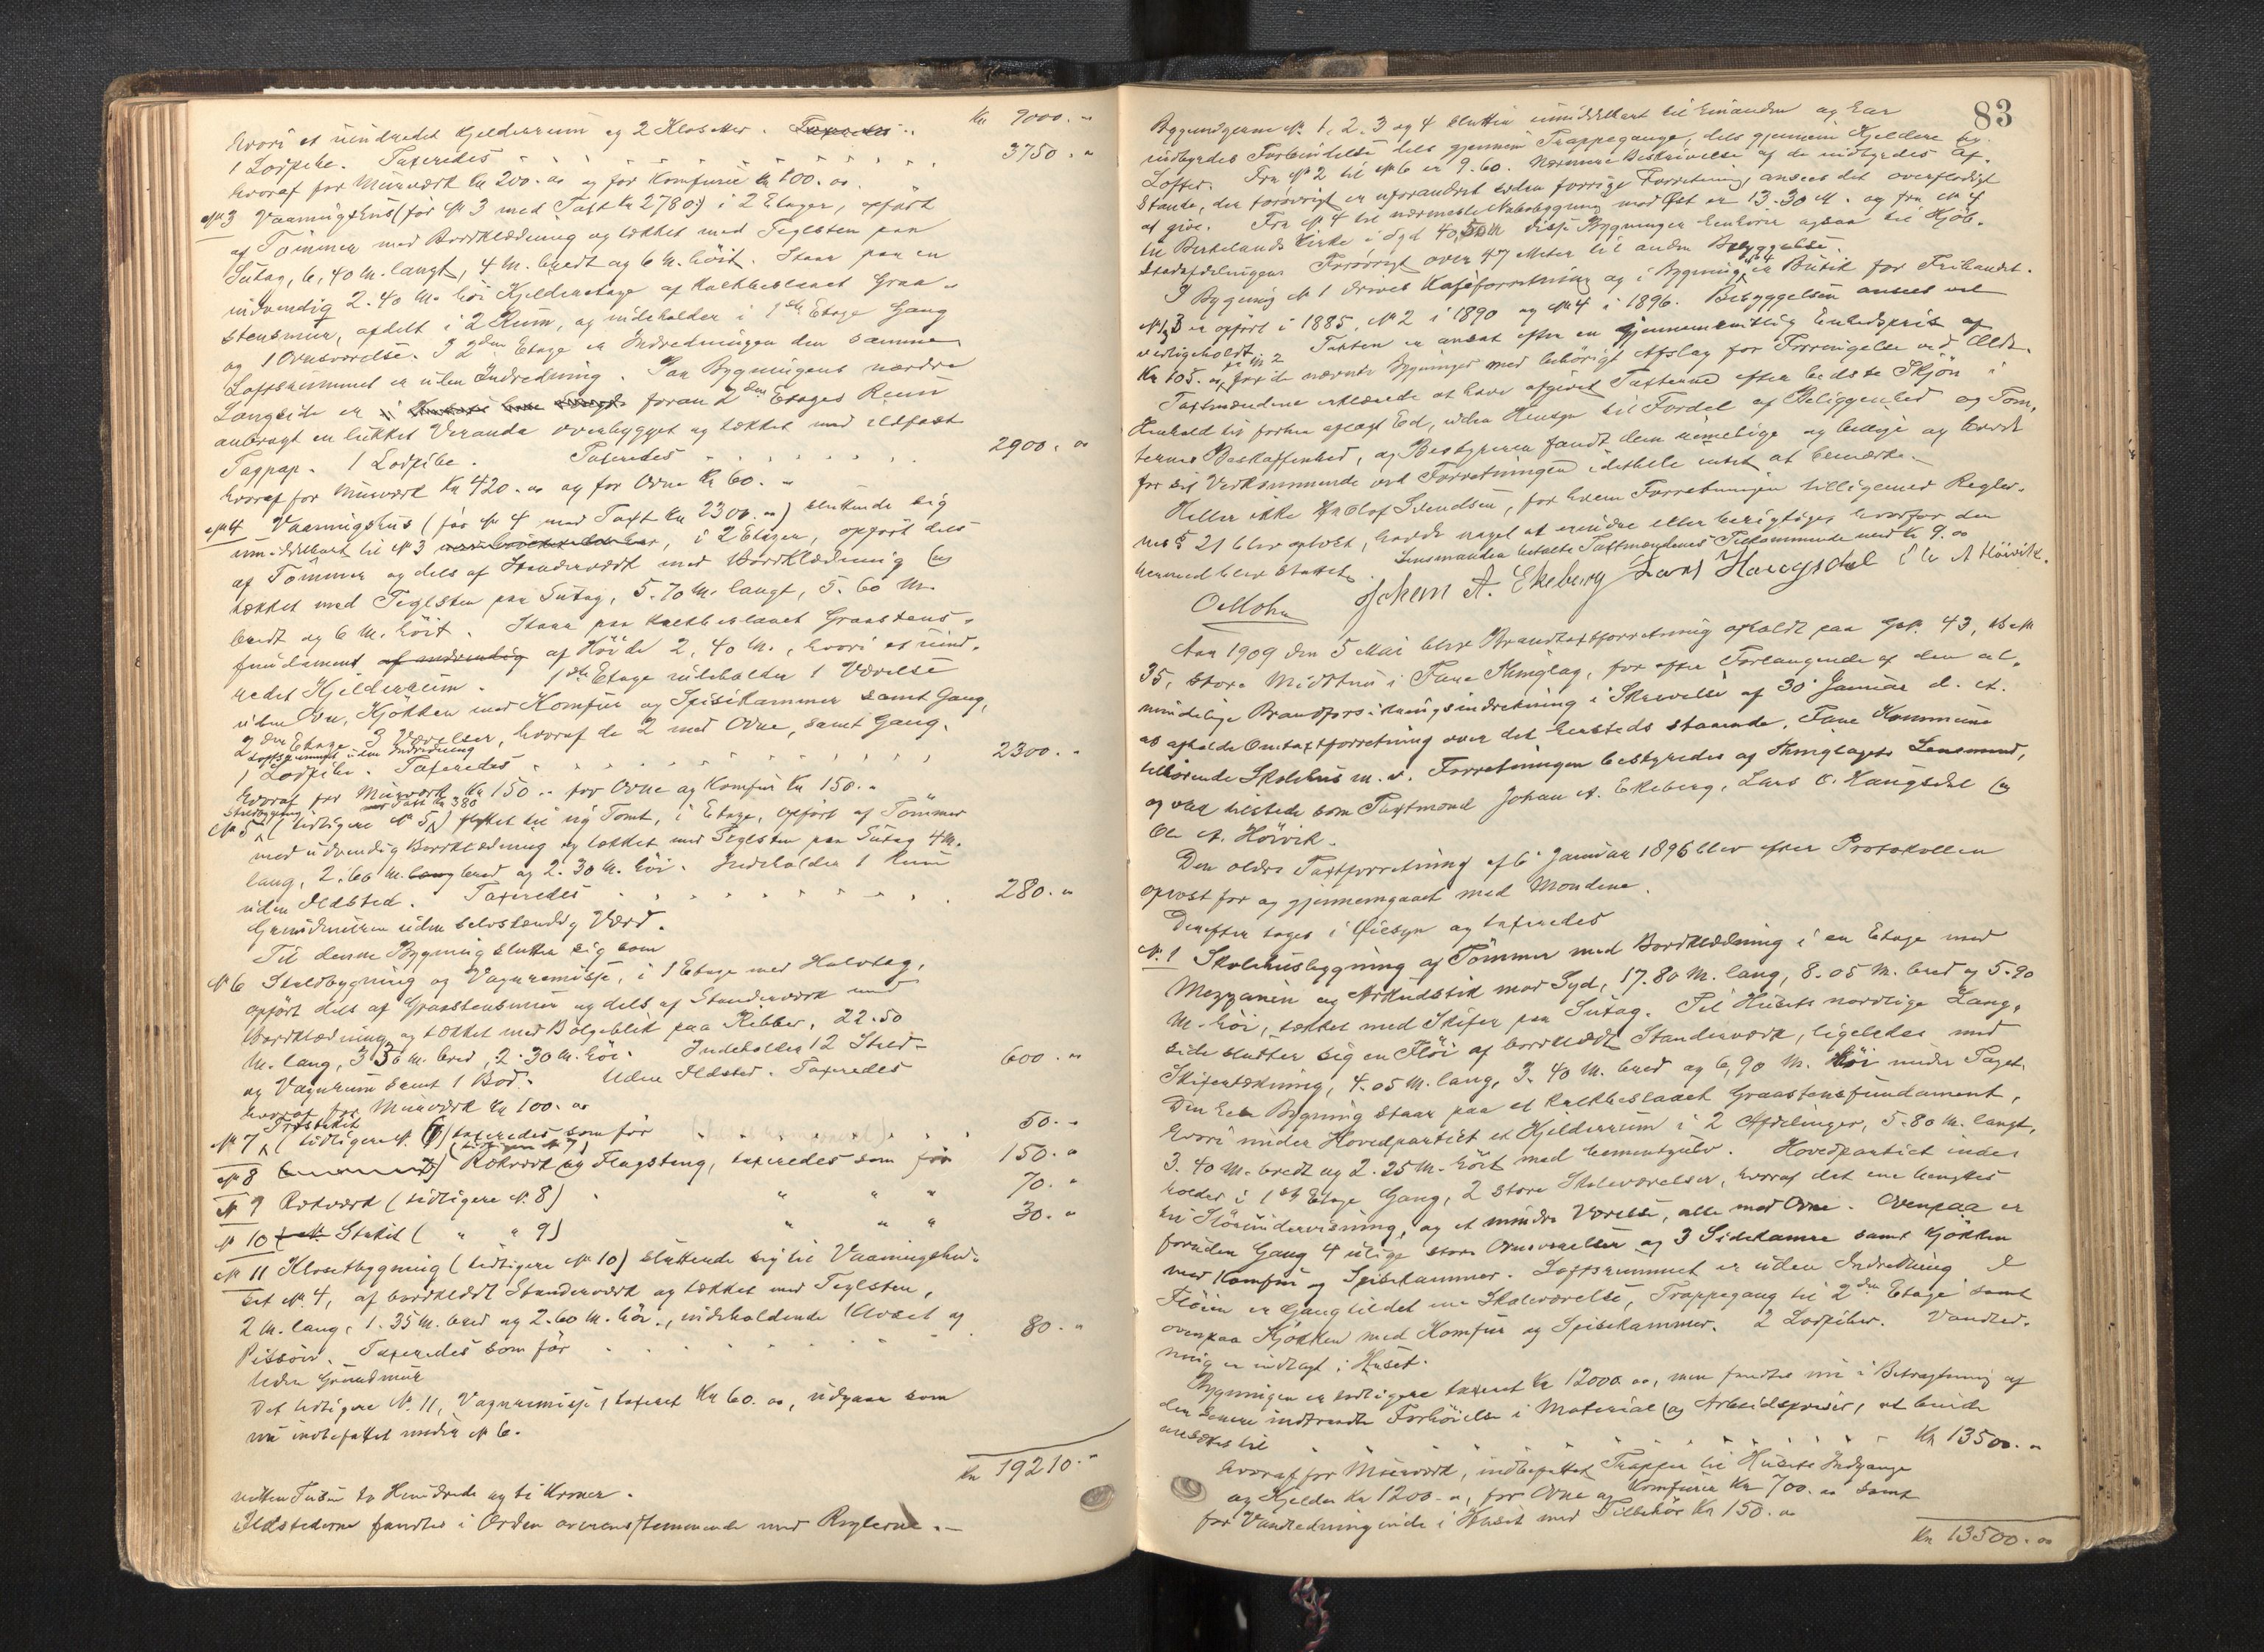 Kr 9000. "
hvori et uindredet Kjelderrum og 2 Klosetter. Taxeredes
1 Lodpibe. Taxeredes 3750. "
hvoraf for Murværk Kr 200. oo og for Komfurer Kr 100. oo.
No 3 Vaaningshus (før No 3 med Taxt Kr 2780.) i 2 Etager, opført
af Tømmer med Bordklædning og tækket med Teglsten paa
Sutag, 6,40 M. langt, 4 M. bredt og 6 M. høit. Staar paa en
indvendig 2.40 M. høi Kjelderetage af kalkbeslaaet Graa-
stensmur, afdelt i 2 Rum, og indeholder i 1ste Etage Gang
og 1 Ovnsværelse. I 2den Etage er Indredningen den samme.
Loftsrummet er uden Indredning. Paa Bygningens nordre
Langside er foran 2den Etages Rum
anbragt en lukket Veranda overbygget og tækket med ildfast
Tagpap. 1 Lodpibe. Taxeredes 2900. oo
hvoraf for Murværk Kr 420. oo og for Ovne Kr 60. "
No 4 Vaaningshus (før No 4 med Taxt Kr 2300. oo) sluttende sig
um-ddelbart til No 3, i 2 Etager, opført dels
af Tømmer og dels af Stenderværk med Bordklædning og
tækket med Teglsten paa Sutag, 5.70 M. langt, 5.60 M.
bredt og 6 M. høit. Staar paa kalkbeslaaet Graastens-
fundament af indvendig af Høide 2,40 M., hvori et uind-
redet Kjelderrum. 1ste Etage indeholder 1 Værelse
uden Ovn, Kjøkken med Komfur og Spisekammer samt Gang,
2den Etage 3 Værelser, hvoraf de 2 med Ovne, samt Gang.
Loftsrummet uden Indredning
1 Lodpibe. Taxeredes 2300. "
hvoraf for Murværk Kr 150 .. for Ovne og Komfur Kr 150. "
Staldbygning med Taxt Kr 380
No 5 (tidligere No 5) flyttet til ny Tomt, i Etage, opført af Tømmer
med udvendig Bordklædning og tækket med Teglsten paa Sutag 4 M.
lang, 2.60 M. bred og 2.30 M. høi. Indeholder 1 Rum
uden Ildsted. Taxeredes 280. "
Grundmuren uden selvstændig Værd.
Til denne Bygning slutter sig som
No 6 Staldbygning og Vognremisse, i 1 Etage med Halvtag,
opført dels af Graastensmur og dels af Stenderværk med
Bordklædning og tækket med Bølgeblik paa Ribber, 22.50
M. lang, 3.30 M. bred, 2.30 M. høi. Indeholder 2 Stald-
og Vognrum samt 1 Bod. Uden Ildsted. Taxeredes 600. "
hvoraf for Murværk Kr 100. oo
No 7 (tidligere No 6) taxeredes som før 50. "
(tidligere No 7)
No 8 Rækværk og Flagstang, taxeredes som før 150. "
No 9 Rækværk (tidligere No 8) " " " 70. "
No 10 Stakit ( " " 9) " " " 30. "
No 11 Klosetbygning (tidligere No 10) sluttende sig til Vaaningshu-
set No 4, af bordklædt Stenderværk og tækket med Teglsten,
2 M. lang, 1.35 M. bred og 2.60 M. høi, indeholdende Kloset og
Pissoir. Taxeredes som før 80. "
Uden Grundmur
Det tidligere No 11, Vognremisse, taxeret Kr 60. oo, udgaar som
nu indbefattet under No 6.
Kr 19210. "
nitten Tusen to Hundrede og ti Kroner.
Ildstederne fandtes i Orden overensstemmende med Reglerne. —
83
Bygningerne No 1, 2, 3 og 4 slutter umiddelbart til hinanden og har
indbyrdes Forbindelse dels gjennem Trappegange, dels gjennem Kjeldere og
Lofter. Fra No 2 til No 6 er 9.60. Nærmere Beskrivelse af de indbyrdes Af-
stande, der forøvrigt er uforandret siden forrige Forretning, ansees det overflødigt
at give. Fra No 4 til nærmeste Nabobygning mod Øst er 13.30 M. og fra No 4
til Birkelands Kirke i Syd 40,50 M disse Bygninger henhører ogsaa til Kjøb-
stadafdelingen. Forøvrigt over 47 Meter til anden Bebyggelse.
I Bygning No 1 drives Kaféforretning og i Bygning No 4 er Butik for Frihandel.
No 1, 3 er opført i 1885, No 2 i 1890 og No 4 i 1896. Bebyggelsen ansees vel
vedligeholdt. Taxten er ansat efter en gjennemsnitlig Enhedspris af
Kr 105. oo for de nævnte Bygninger med behørigt Afslag for Forringelse ved Ælde.
Taxtmændene erklærede at have afgivet Taxterne efter bedste Skjøn i
Henhold til forhen aflagt Ed, uden Hensyn til Fordel af Beliggenhed og Tom-
ternes Beskaffenhed, og Bestyreren fandt dem rimelige og billige og havde
for sit Vedkommende ved Forretningen idethele intet at bemærke.
Heller ikke Hr Olaf Svendsen, for hvem Forretningen tilligemed Regler-
nes § 21 blev oplæst, havde noget at erindre eller berigtige, hvorfor den
hermed blev sluttet. Lensmanden betalte Taxtmændenes Tilkommende med Kr 9. oo
O Mohn Johan A. Ekeberg Lars Haugsdal Ole A Høivik.
Aar 1909 den 5 Mai blev Brandtaxtforretning afholdt paa Gr. 43, B. No
35, store Midttun i Fane Thinglag, for efter Forlangende af den al-
mindelige Brandforsikringsindretning i Skrivelse af 30 Januar d. A.
at afholde Omtaxtforretning over det hersteds staaende, Fane Kommune
tilhørende Skolehus m. v. Forretningen bestyredes af Thinglagets Lensmand,
og var tilstede som Taxtmænd Johan A. Ekeberg, Lars O. Haugsdal og
Ole A. Høivik.
Den ældre Taxtforretning af 6 Januar 1896 blev efter Protokollen
oplæst for og gjennemgaaet med Mændene.
Derefter toges i Øiesyn og taxeredes
No. 1 Skolehusbygning af Tømmer med Bordklædning i en Etage med
Mezzanin og Arkudstik mod Syd, 17.80 M. lang, 8.05 M. bred og 5.90
M. høi, tækket med Skifer paa Sutag. Til Husets nordlige Lang-
side slutter sig en Fløi af bordklædt Stenderværk, ligeledes med
Skifertækning, 4.05 M. lang, 3.40 M. bred og 6,90 M. høi under Taget.
Den hele Bygning staar paa et kalkbeslaaet Graastensfundament,
hvori under Hovedpartiet et Kjelderrum i 2 Afdelinger, 5.80 M. langt,
3.40 M. bredt og 2.25 M. høit med Cementgulv. Hovedpartiet inde-
holder i 1ste Etage Gang, 2 store Skoleværelser, hvoraf det ene benyttes
til Sløidundervisning, og et mindre Værelse, alle med Ovne. Ovenpaa er
foruden Gang 4 ulige store Ovnsværelser og 3 Sidekamre samt Kjøkken
med Komfur og Spisekammer. Loftsrummet er uden Indredning I
Fløien er Gang til det ene Skoleværelse, Trappegang til 2den Etage samt
ovenpaa Kjøkken med Komfur og Spisekammer. 2 Lodpiber. Vandled-
ning er indlagt i Huset.
Bygningen er tidligere taxeret Kr 12000. oo, men fandtes nu i Betragtning af
den senere indtraadte Forhøielse i Material og Arbeidspriser, at burde
ansættes til Kr 13500. "
hvoraf for Murværk, indbefattet Trapper til Husets Indgange
og Kjelder Kr 1200. ", for Ovne og Komfurer Kr 700. oo samt
for Vandledning inde i Huset med Tilbehør Kr 150. oo
Kr 13500. oo